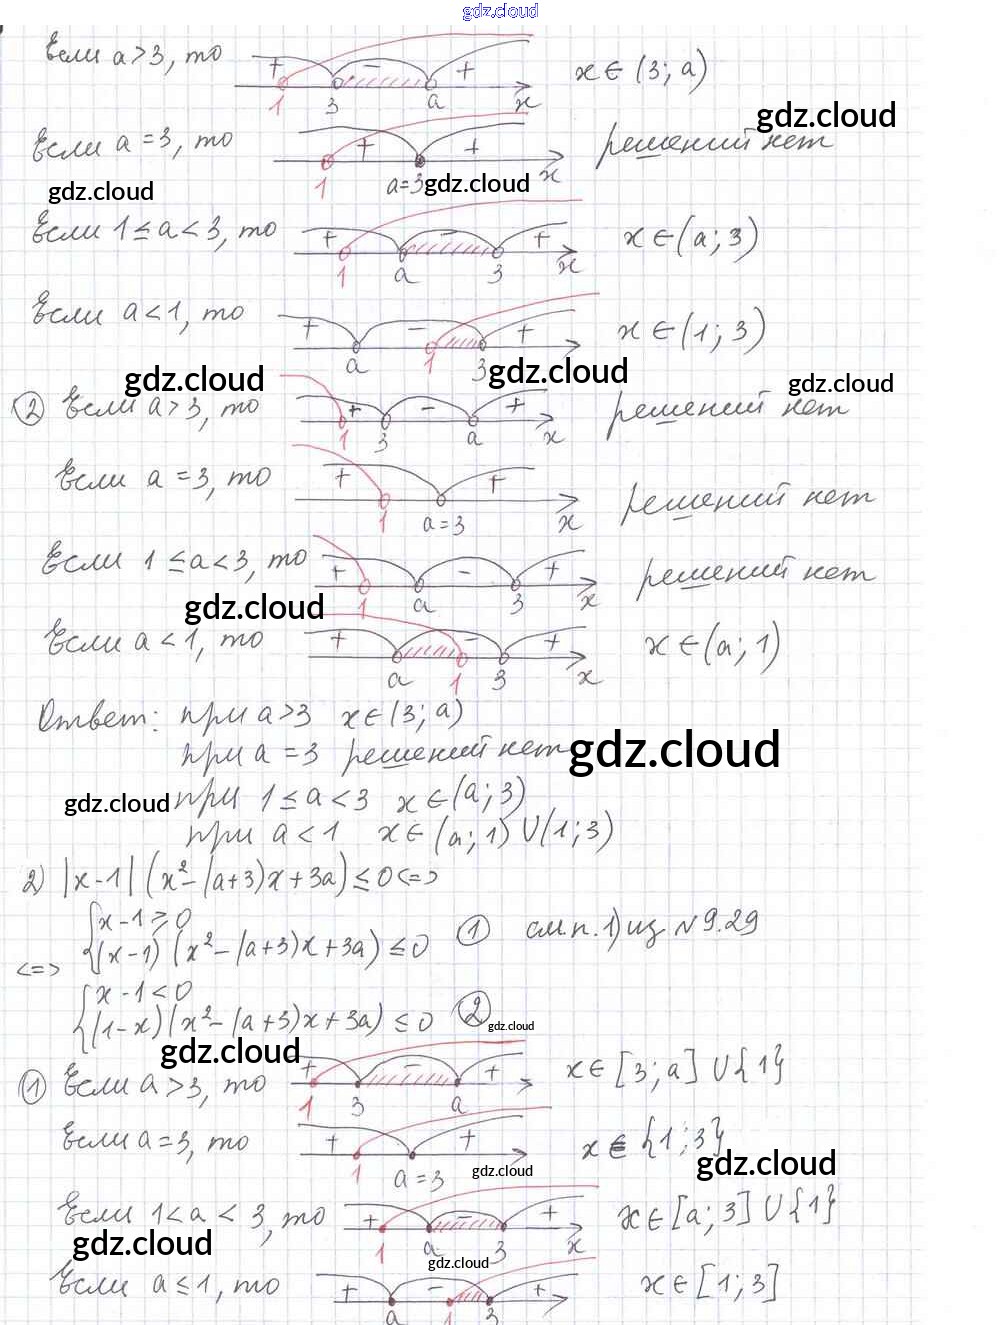 gdz.cloud
Если a>3, то + − + 1 3 a x x∈(3; a)
gdz.cloud
Если a=3, то + + 1 a=3 x решений нет
gdz.cloud gdz.cloud
Если 1≤a<3, то + − + 1 a 3 x x∈(a; 3)
Если a<1, то + − + a 1 3 x∈(1; 3)
gdz.cloud gdz.cloud gdz.cloud
② Если a>3, то + − + 1 3 a x решений нет
Если a=3, то + + 1 a=3 x решений нет
Если 1≤a<3, то + − + 1 a 3 x решений нет
gdz.cloud
Если a<1, то + − + a 1 3 x x∈(a; 1)
Ответ: при a>3 x∈(3; a)
при a=3 решений нет
gdz.cloud
gdz.cloud при 1≤a<3 x∈(a; 3)
при a<1 x∈(a; 1)∪(1; 3)
2) |x-1|(x²-(a+3)x+3a)≤0<=>
<=> {x-1≥0
(x-1)(x²-(a+3)x+3a)≤0 ① см.п.1) из №9.29
{x-1<0
(1-x)(x²-(a+3)x+3a)≤0 ②
gdz.cloud
gdz.cloud
① Если a>3, то + − + 1 3 a x∈[3; a]∪{1}
Если a=3, то + + 1 a=3 x∈{1; 3}
gdz.cloud gdz.cloud
Если 1<a<3, то + − + 1 a 3 x x∈[a; 3]∪{1}
gdz.cloud gdz.cloud
Если a≤1, то + − + a 1 3 x∈[1; 3]